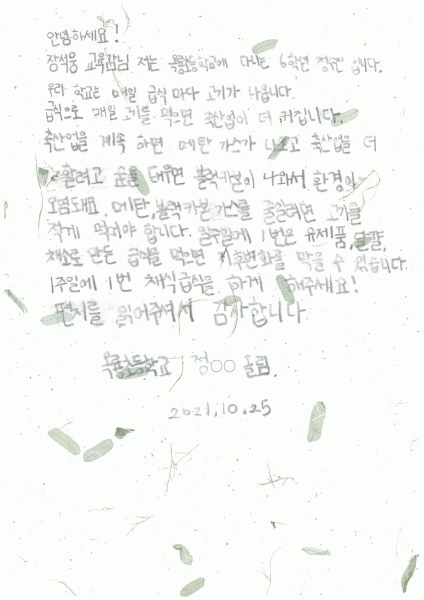 안녕하세요!
장석웅 교육감님 저는 옥룡초등학교에 다니는 6학년 정 입니다.
우리 학교는 매일 급식 마다 고기가 나옵니다.
급식으로 매일 고기를 먹으면 축산업이 더 커집니다.
축산업을 계속 하면 메탄 가스가 나오고 축산업을 더
늘릴려고 숲을 태우면 블랙카본이 나와서 환경이
오염돼요. 메탄,블랙카본 가스를 줄일려면 고기를
적게 먹어야 합니다. 일주일에 1번은 유제품,달걀,
채소로 만든 급식을 먹으면 기후변화를 막을 수 있습니다.
1주일에 1번 채식급식을 하게 해주세요!
편지를 읽어주셔서 감사합니다
옥룡초등학교 정○○ 올림.
2021.10.25